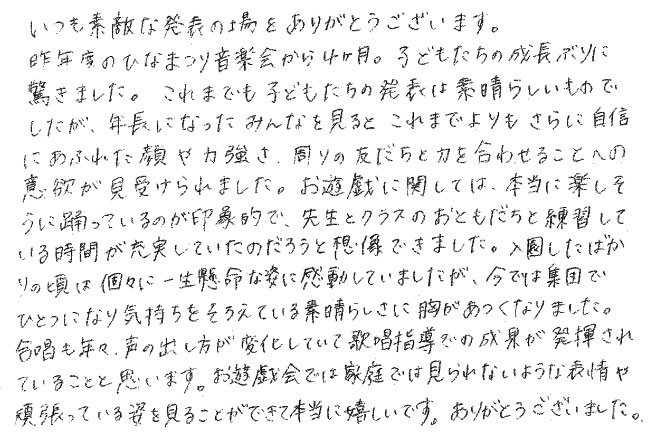 いつも素敵な発表の場をありがとうございます。
昨年度のひなまつり音楽会から4ヶ月。子どもたちの成長ぶりに
驚きました。これまでも子どもたちの発表は素晴らしいもので
したが、年長になったみんなを見ると これまでよりもさらに自信
にあふれた顔や力強さ、周りの友だちと力を合わせることへの
意欲が見受けられました。お遊戯に関しては、本当に楽しそ
うに踊っているのが印象的で、先生とクラスのおともだちと練習して
いる時間が充実していたのだろうと想像できました。入園したばか
りの頃は個々に一生懸命な姿に感動していましたが、今では集団で
ひとつになり気持ちをそろえている素晴らしさに胸があつくなりました。
合唱も年々、声の出し方が変化していて歌唱指導での成果が発揮され
ていることと思います。お遊戯会では家庭では見られないような表情や
頑張っている姿を見ることができて本当に嬉しいです。ありがとうございました。